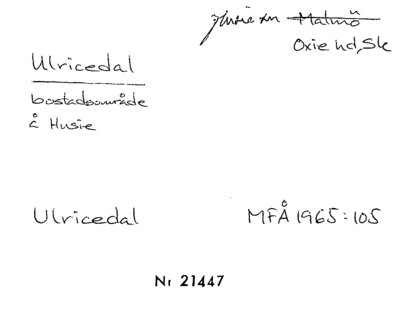 Husie sn Malmö
Oxie hd, Sk
Ulricedal
bostadsområde
å Husie
Ulricedal MFÅ 1965:105
Nr 21447